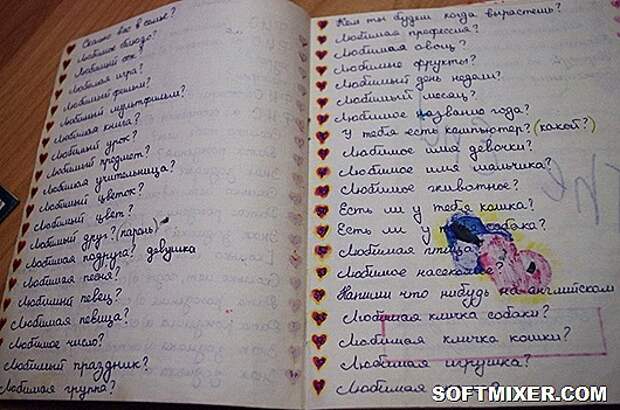 Сколько вас в семье?
Любимое блюдо?
Любимый сок?
Любимая игра?
Любимый фильм?
Любимый мультфильм?
Любимая книга?
Любимый урок?
Любимый предмет?
Любимая учительница?
Любимый цветок?
Любимый цвет?
Любимый друг? (парень)
Любимая подруга? девушка
Любимая песня?
Любимый певец?
Любимая певица?
Любимое число?
Любимый праздник?
Любимая группа?
Кем ты будеш когда вырастешь?
Любимая профессия?
Любимая овощ?
Любимые фрукты?
Любимый день недели?
Любимый месяц?
Любимое название года?
У тебя есть компьютер? (какой?)
Любимое имя девочки?
Любимое имя мальчика?
Любимое животное?
Есть ли у тебя кошка?
Есть ли у собака?
Любимая птица
Любимое насекомое?
Напиши что нибудь на английском
Любимая кличка собаки?
Любимая кличка кошки?
Любимая игрушка?
Любимая
SOFTMIXER.COM